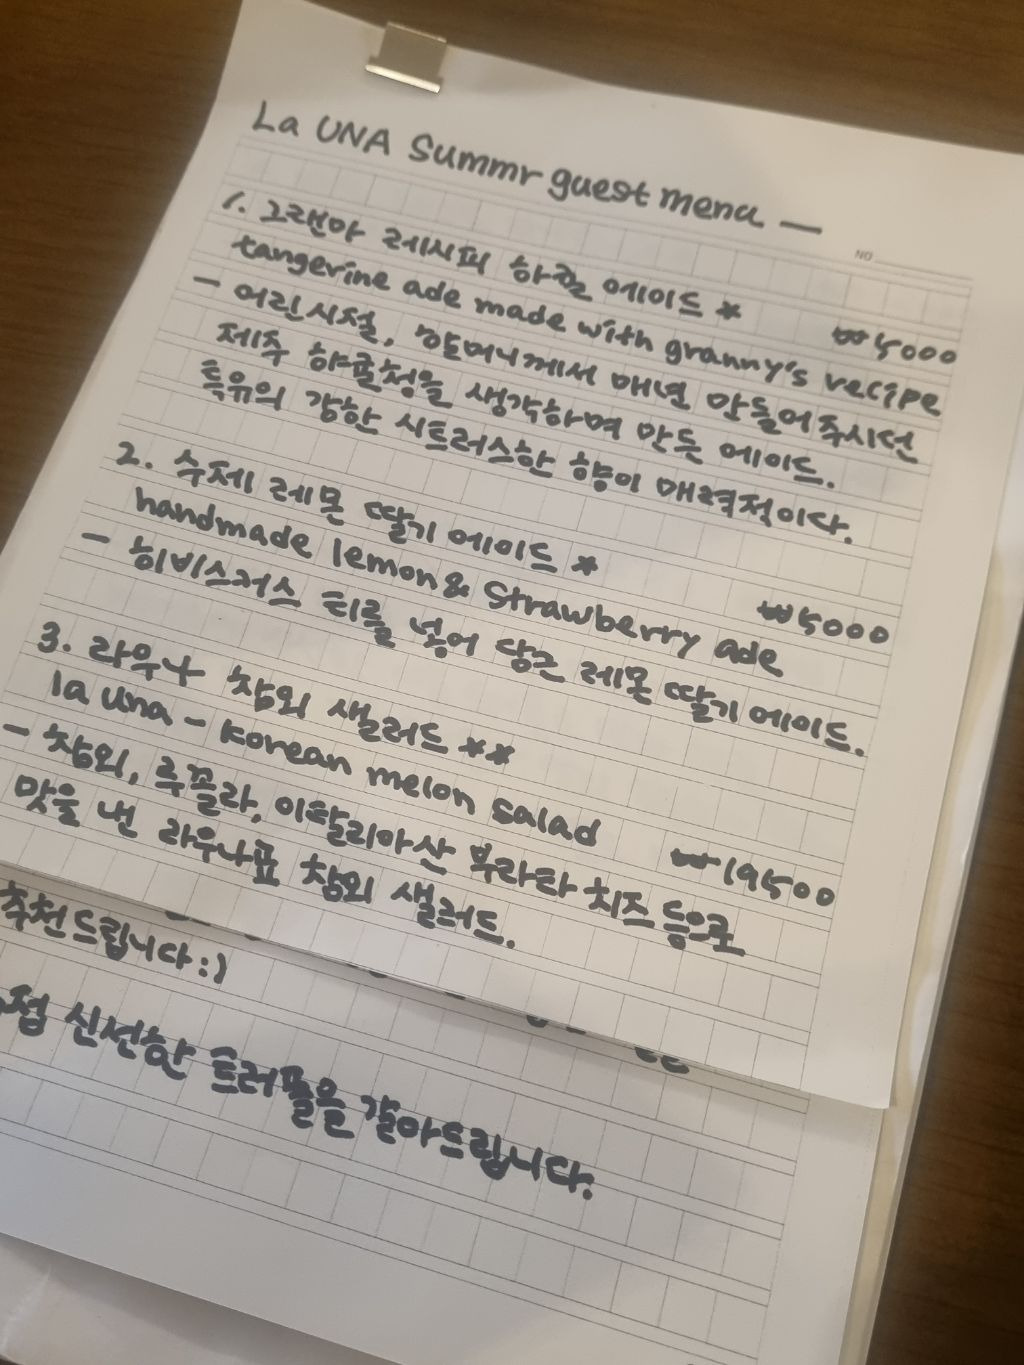 La UNA Summr guest menu —
NO
1. 그랜마 레시피 하귤 에이드 * ₩5000
tangerine ade made with granny's recipe
- 어린시절, 할머니께서 매년 만들어주시던
제주 하귤청을 생각하며 만든 에이드.
특유의 강한 시트러스한 향이 매력적이다.
2. 수제 레몬 딸기 에이드 * ₩5000
handmade lemon & strawberry ade
- 히비스커스 티를 넣어 담근 레몬 딸기 에이드.
3. 라우나 참외 샐러드 ** ₩19500
la una - korean melon salad
- 참외, 루꼴라, 이탈리아산 부라타 치즈 등으로
맛을 낸 라우나표 참외 샐러드.
추천드립니다 :)
접 신선한 트러플을 갈아드립니다.